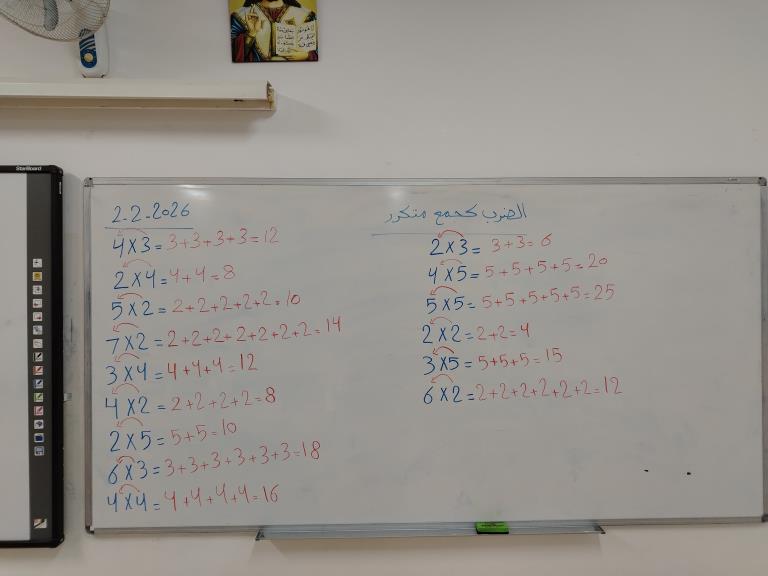 StarBoard
2-2-2026
الضرب كجمع متكرر
4×3=3+3+3+3=12
2×4=4+4=8
5×2=2+2+2+2+2=10
7×2=2+2+2+2+2+2+2=14
3×4=4+4+4=12
4×2=2+2+2+2=8
2×5=5+5=10
6×3=3+3+3+3+3+3=18
4×4=4+4+4+4=16
2×3=3+3=6
4×5=5+5+5+5=20
5×5=5+5+5+5+5=25
2×2=2+2=4
3×5=5+5+5=15
6×2=2+2+2+2+2+2=12